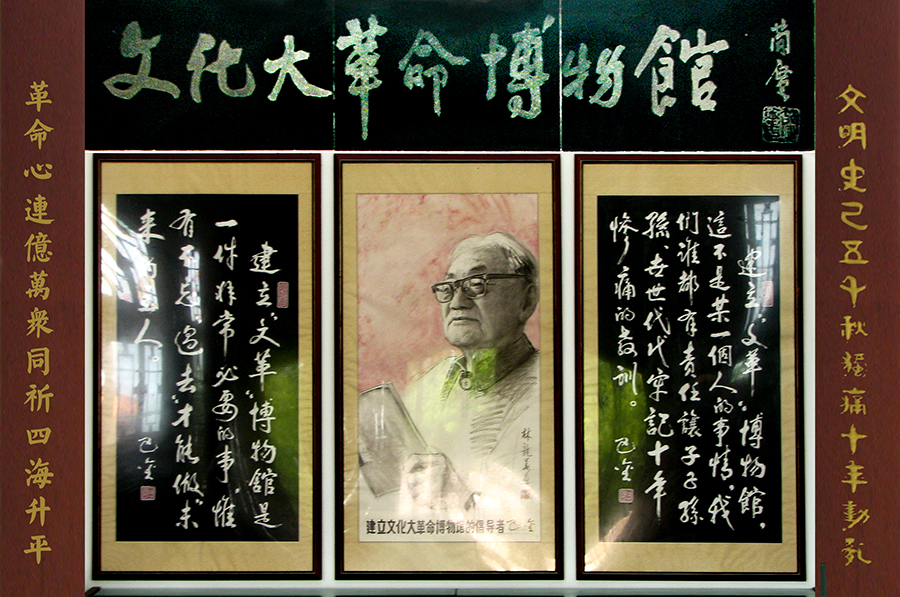 文化大革命博物館
文明史已五千秋痛十年動亂
建立“文革”博物館，
這不是某一個人的事情，我
們誰都有責任讓子子孫
孫、世世代代牢記十年
慘痛的教訓。
巴金
建立文化大革命博物馆的倡导者巴金
建立“文革”博物館是
一件非常必要的事，惟
有不忘“過去”才能做“未
來”的主人。
巴金
革命心連億萬衆同祈四海升平